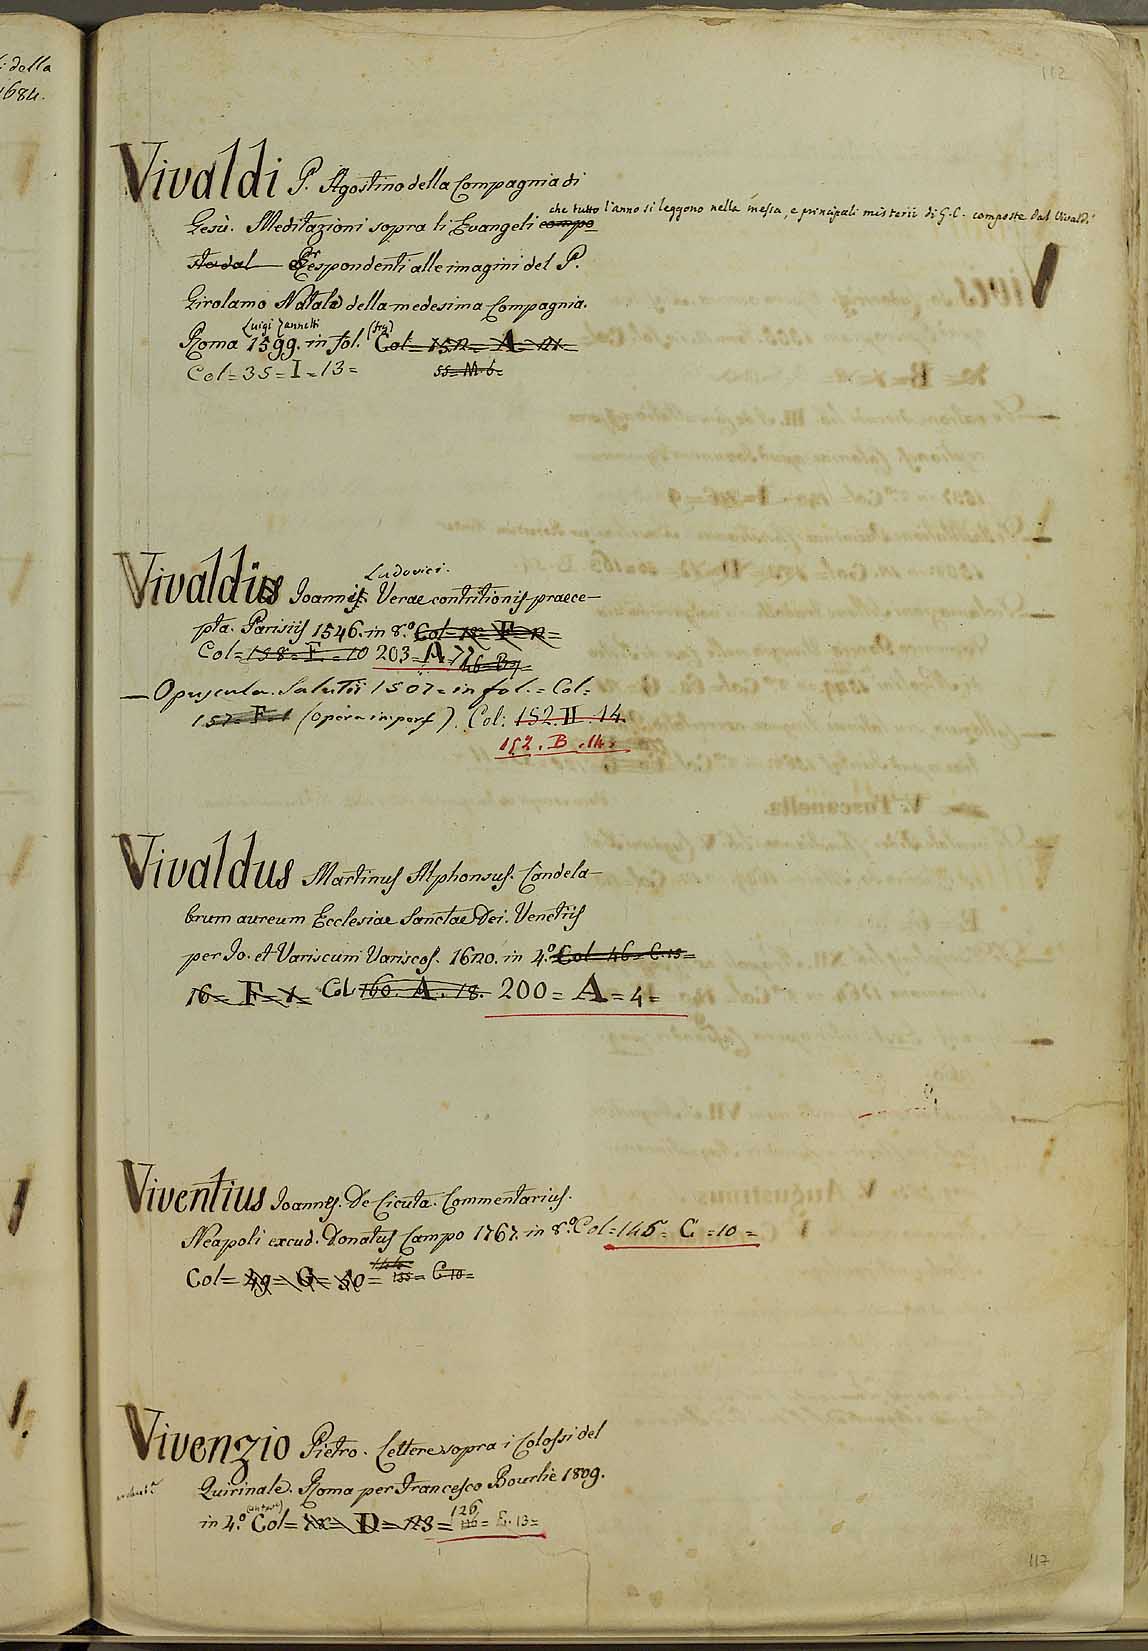 i della
1684.
112
Vivaldi P. Agostino della Compagnia di
che tutto l'anno si leggono nella messa, e principali misterii di G. C. composte dal Vivaldi
Gesù. Meditazioni sopra li Evangeli compo
sto dal rispondenti alle imagini del P.
Girolamo Natale della medesima Compagnia.
Luigi Zannetti (fig)
Roma 1599. in fol. Col= 152= A= 21=
Col= 35= I= 13= 55= M. 6=
Ludovici.
Vivaldus Joannis Verae contritionis praece-
pta. Parisiis 1546. in 8.º Col= 12= F= 12=
Col= 158= E= 10 203= A 77 46= B7=
— Opuscula. Salutii 1507= in fol.= Col=
157= F= 1 (Opera imperf). Col: 152. II. 14.
152. B. 14.
Vivaldus Martinus Alphonsus. Candela-
brum aureum Ecclesiae Sanctae Dei. Venetiis
per Jo. et Variscum Variscos. 1620. in 4.º Col 46= C. 15=
16= F= 1= Col 160. A. 18. 200= A= 4=
Viventius Joannes. De Cicuta. Commentarius.
Neapoli excud. Donatus Campo 1767. in 8.º Col= 145= C= 10=
Col= 49= G= 50= 144 155= C 10=
Vivenzio Pietro. Lettere sopra i Colossi del
Quirinale. Roma per Francesco Bourlie 1809.
in 4.º Col= 12= D= 123= 126 116= E. 13=
117